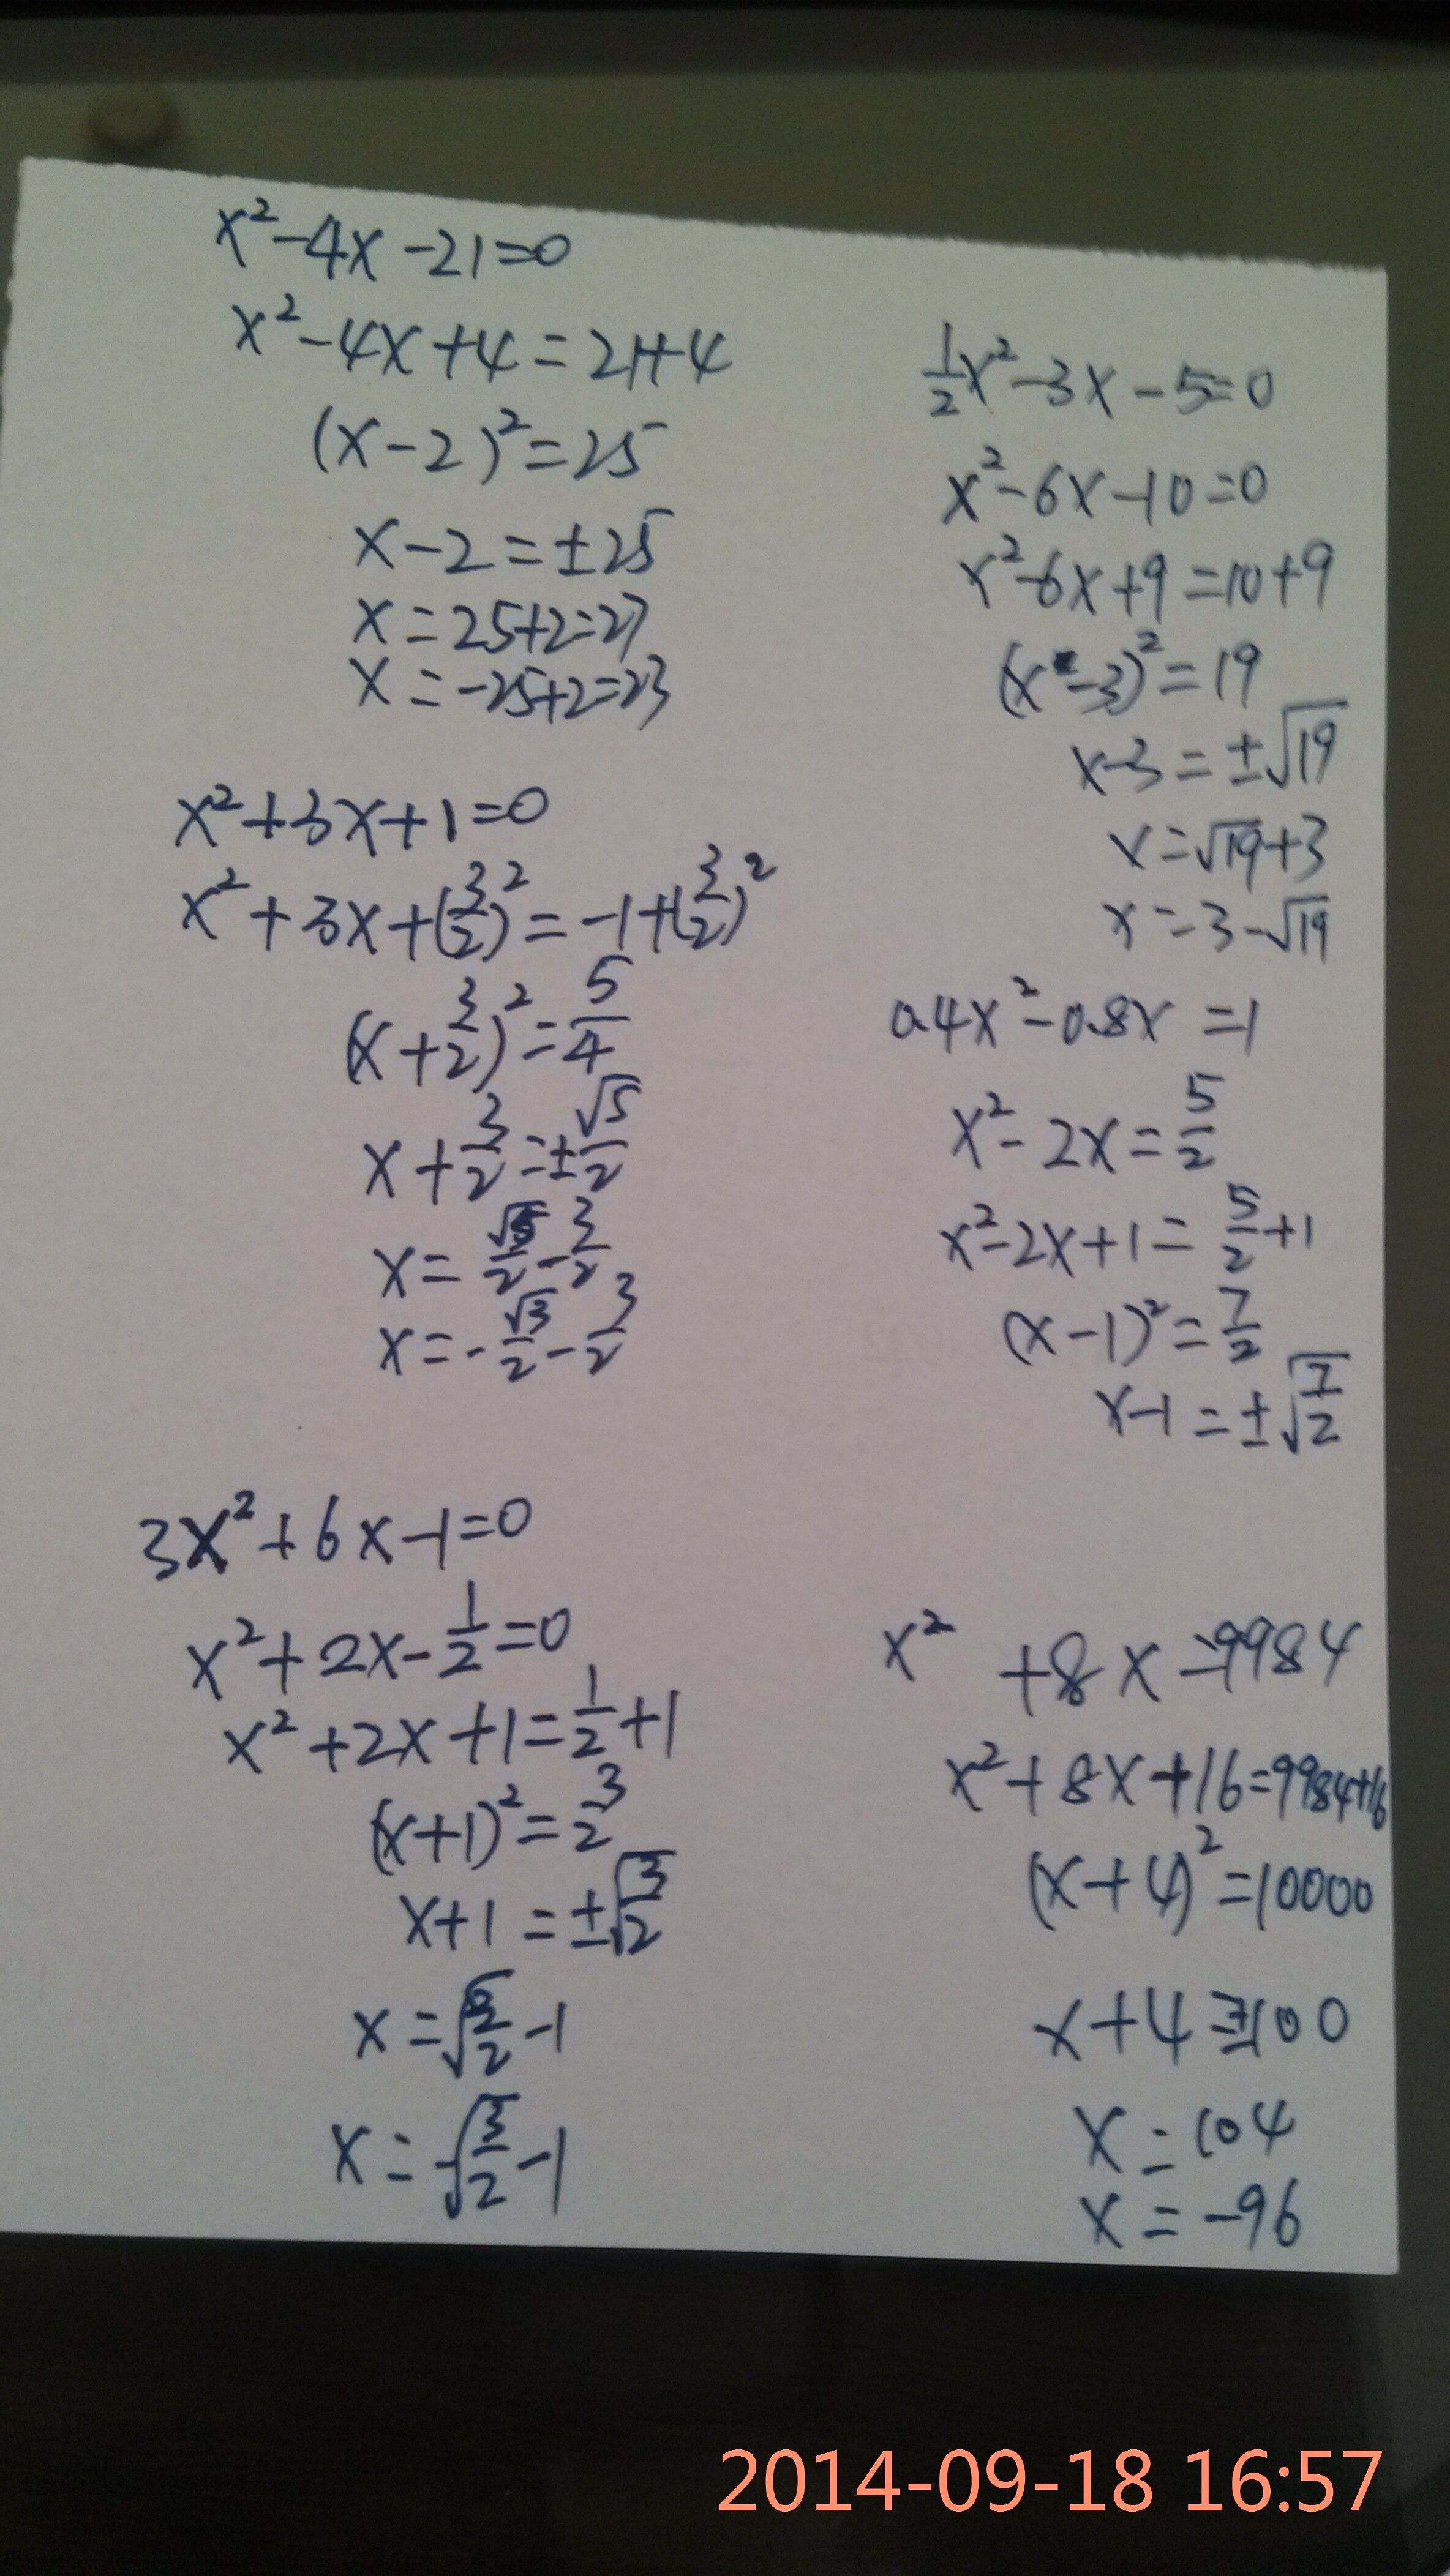 x²-4x-21=0
x²-4x+4=21+4
(x-2)²=25
x-2=±25
x=25+2=27
x=-25+2=23
x²+3x+1=0
x²+3x+(3/2)²=-1+(3/2)²
(x+3/2)²=5/4
x+3/2=±√5/2
x=√5/2-3/2
x=-√3/2-3/2
3x²+6x-1=0
x²+2x-1/2=0
x²+2x+1=1/2+1
(x+1)²=3/2
x+1=±√(3/2)
x=√(3/2)-1
x=-√(3/2)-1
1/2x²-3x-5=0
x²-6x-10=0
x²-6x+9=10+9
(x-3)²=19
x-3=±√19
x=√19+3
x=3-√19
0.4x²-0.8x=1
x²-2x=5/2
x²-2x+1=5/2+1
(x-1)²=7/2
x-1=±√(7/2)
x²+8x=9984
x²+8x+16=9984+16
(x+4)²=10000
x+4=±100
x=104
x=-96
2014-09-18 16:57